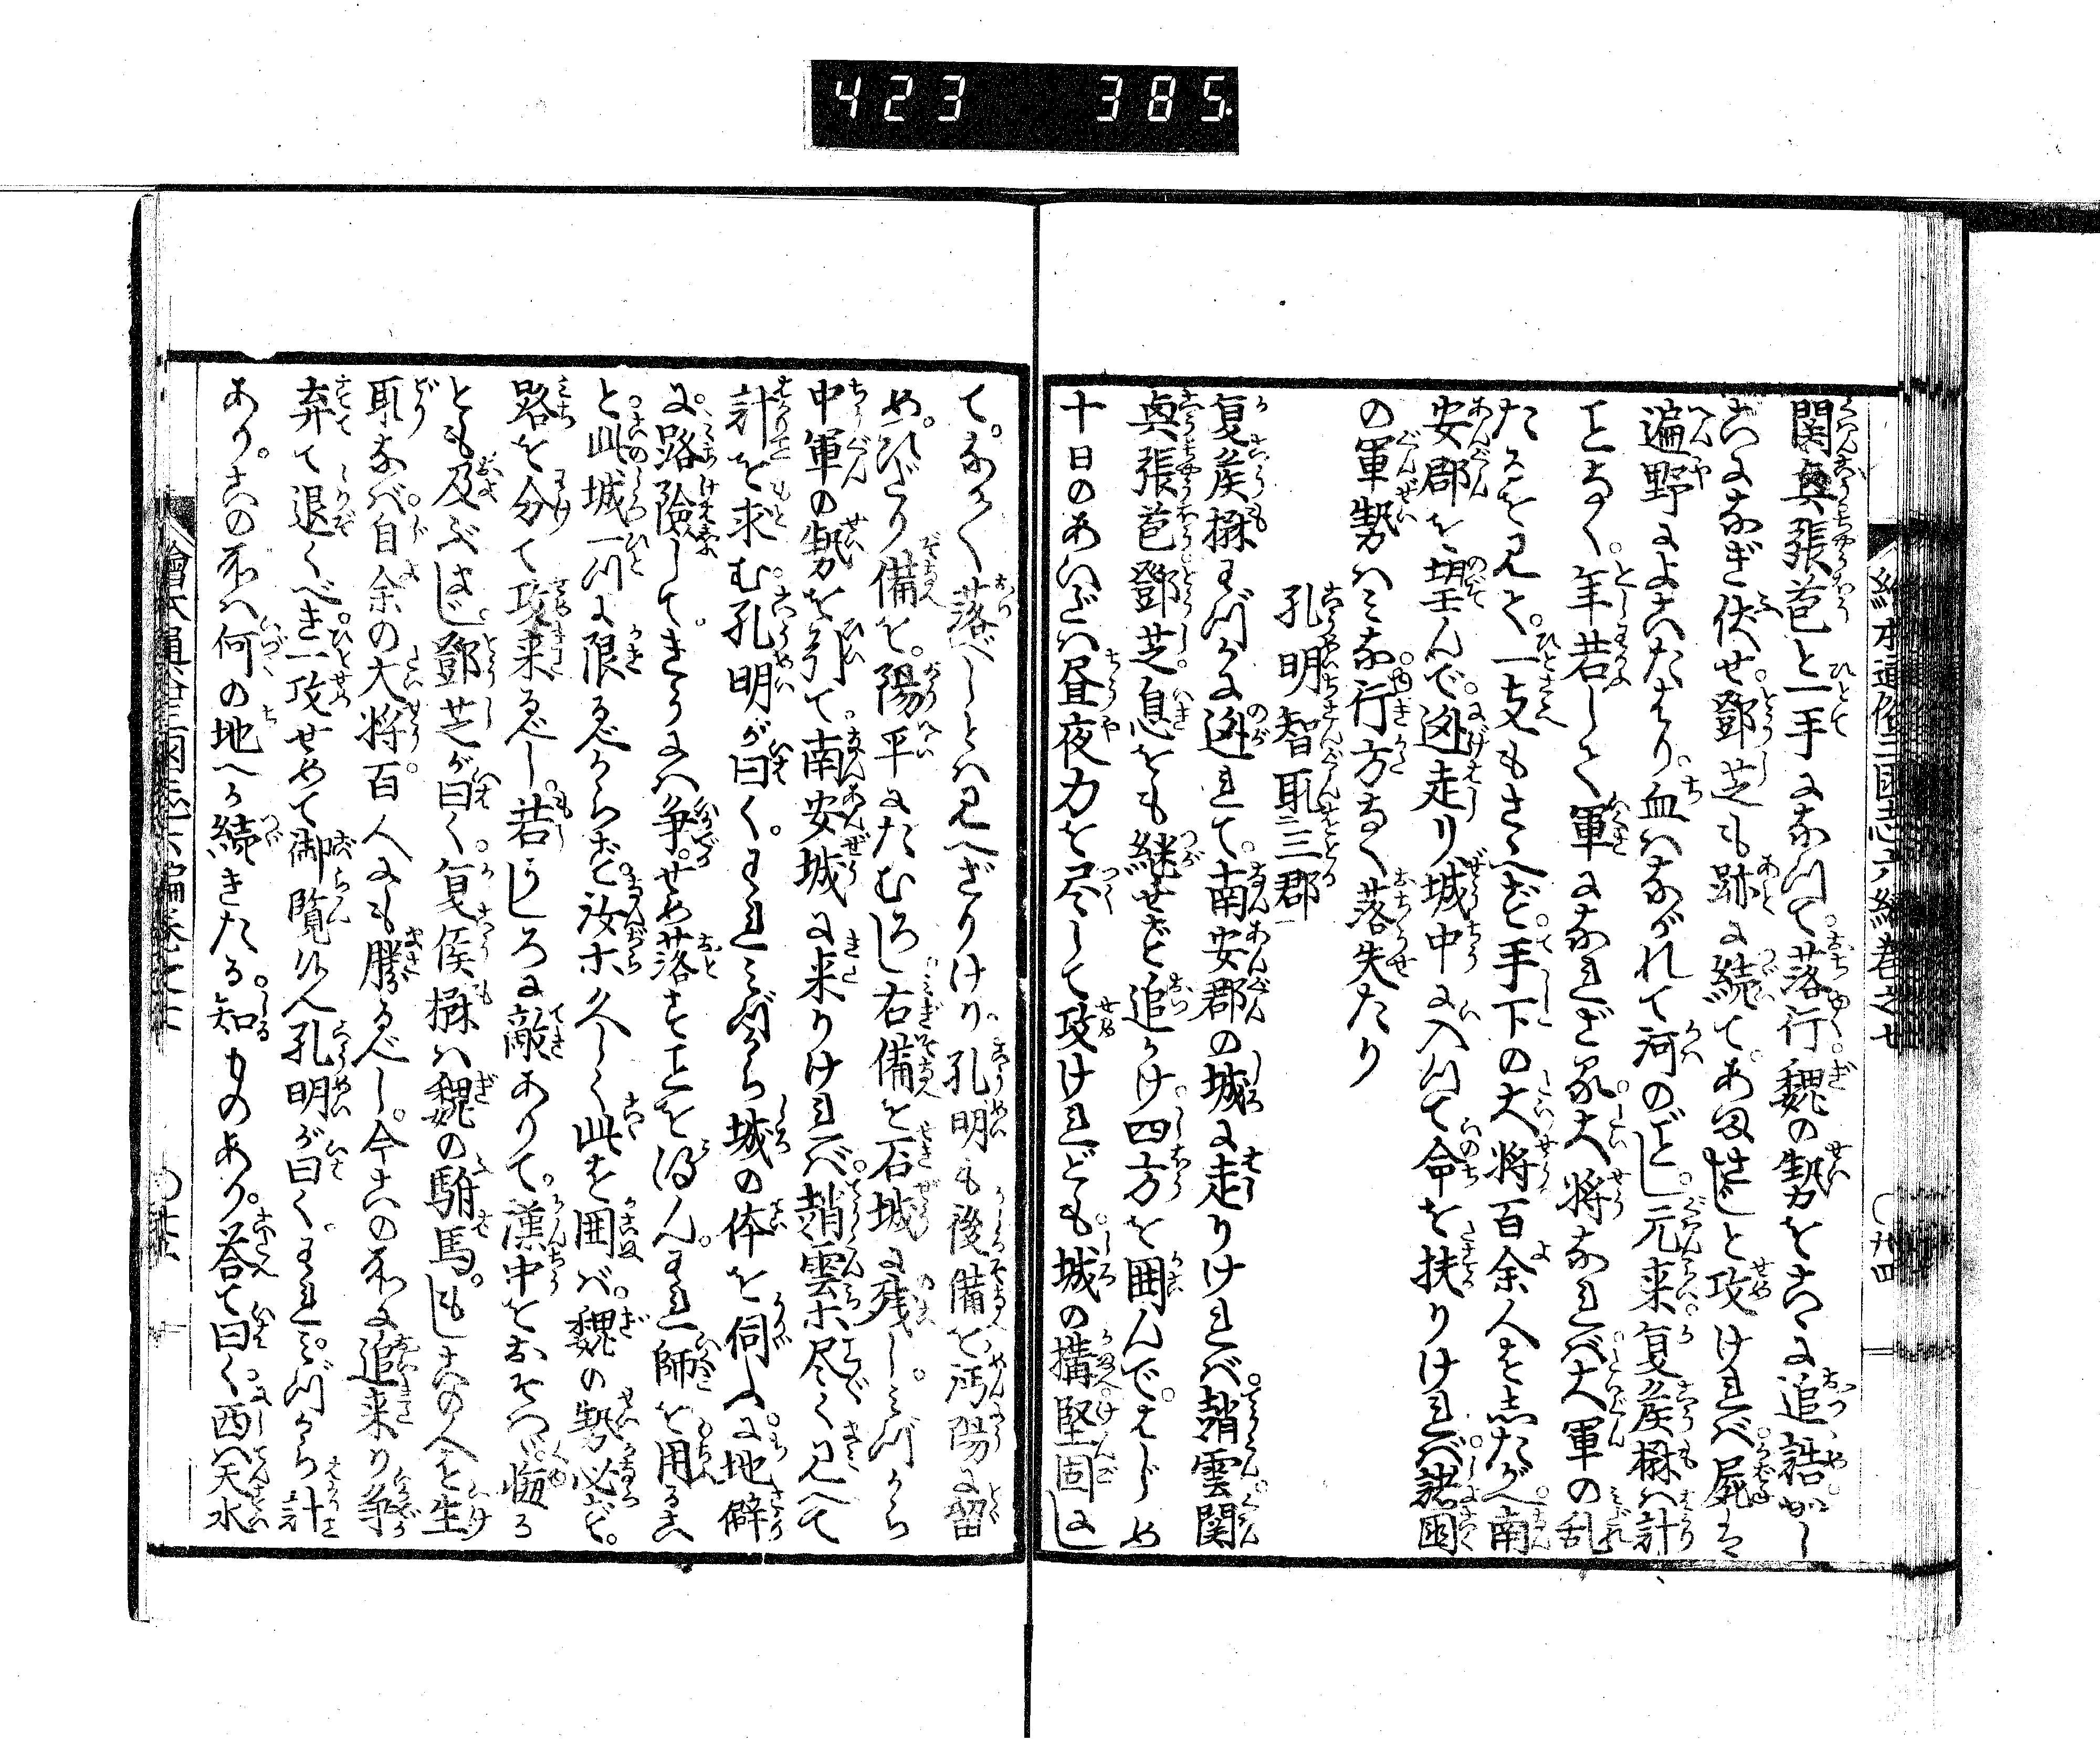 423 385
繪本通俗三國志六編卷之七
関興張苞と一手になつて落行魏の勢をこゝに追詰かし
こになぎ伏せ鄧芝も跡に続てあまさじと攻ければ屍は
遍野によこたはり血はながれて河のごとし元来夏侯楙は計
ことなく年若して軍になれざる大将なれば大軍の乱
たるを見て一支もさゝへず手下の大将百余人をしたがへ南
安郡を望んで迯走り城中に入つて命を扶りければ諸国
の軍勢はみな行方なく落失たり
孔明智取三郡
夏侯楙わづかに迯れて南安郡の城に走りければ趙雲関
興張苞鄧芝息をも継せず追かけ四方を囲んではじめ
十日のあいだは昼夜力を尽して攻けれども城の構堅固にし
てなか〳〵落べしとは見へざりけり孔明も後備を沔陽に留
めひだり備を陽平にたむろし右備を石城に残しみづから
中軍の勢を引て南安城に来りければ趙雲ホ尽く見へて
計を求む孔明が曰くわれみづから城の体を伺ふに地僻
に路険してきうには争せめ落すことを得んわれ師を用るこ
と此城一つに限るべからず汝ホ久しく此を囲ば魏の勢必ず
路を分て攻来るべし若うしろに敵ありて漢中をおそはゞ悔る
とも及ぶまじ鄧芝が曰く夏侯楙は魏の駙馬もしこの人を生
取なば自余の大将百人にも勝るべし今この所に追来り争
弃て退くべき一攻せめて御覧候へ孔明が曰くわれみづから計
ありこの所へ何の地へか続きたる知ものあり荅て曰く西は天水